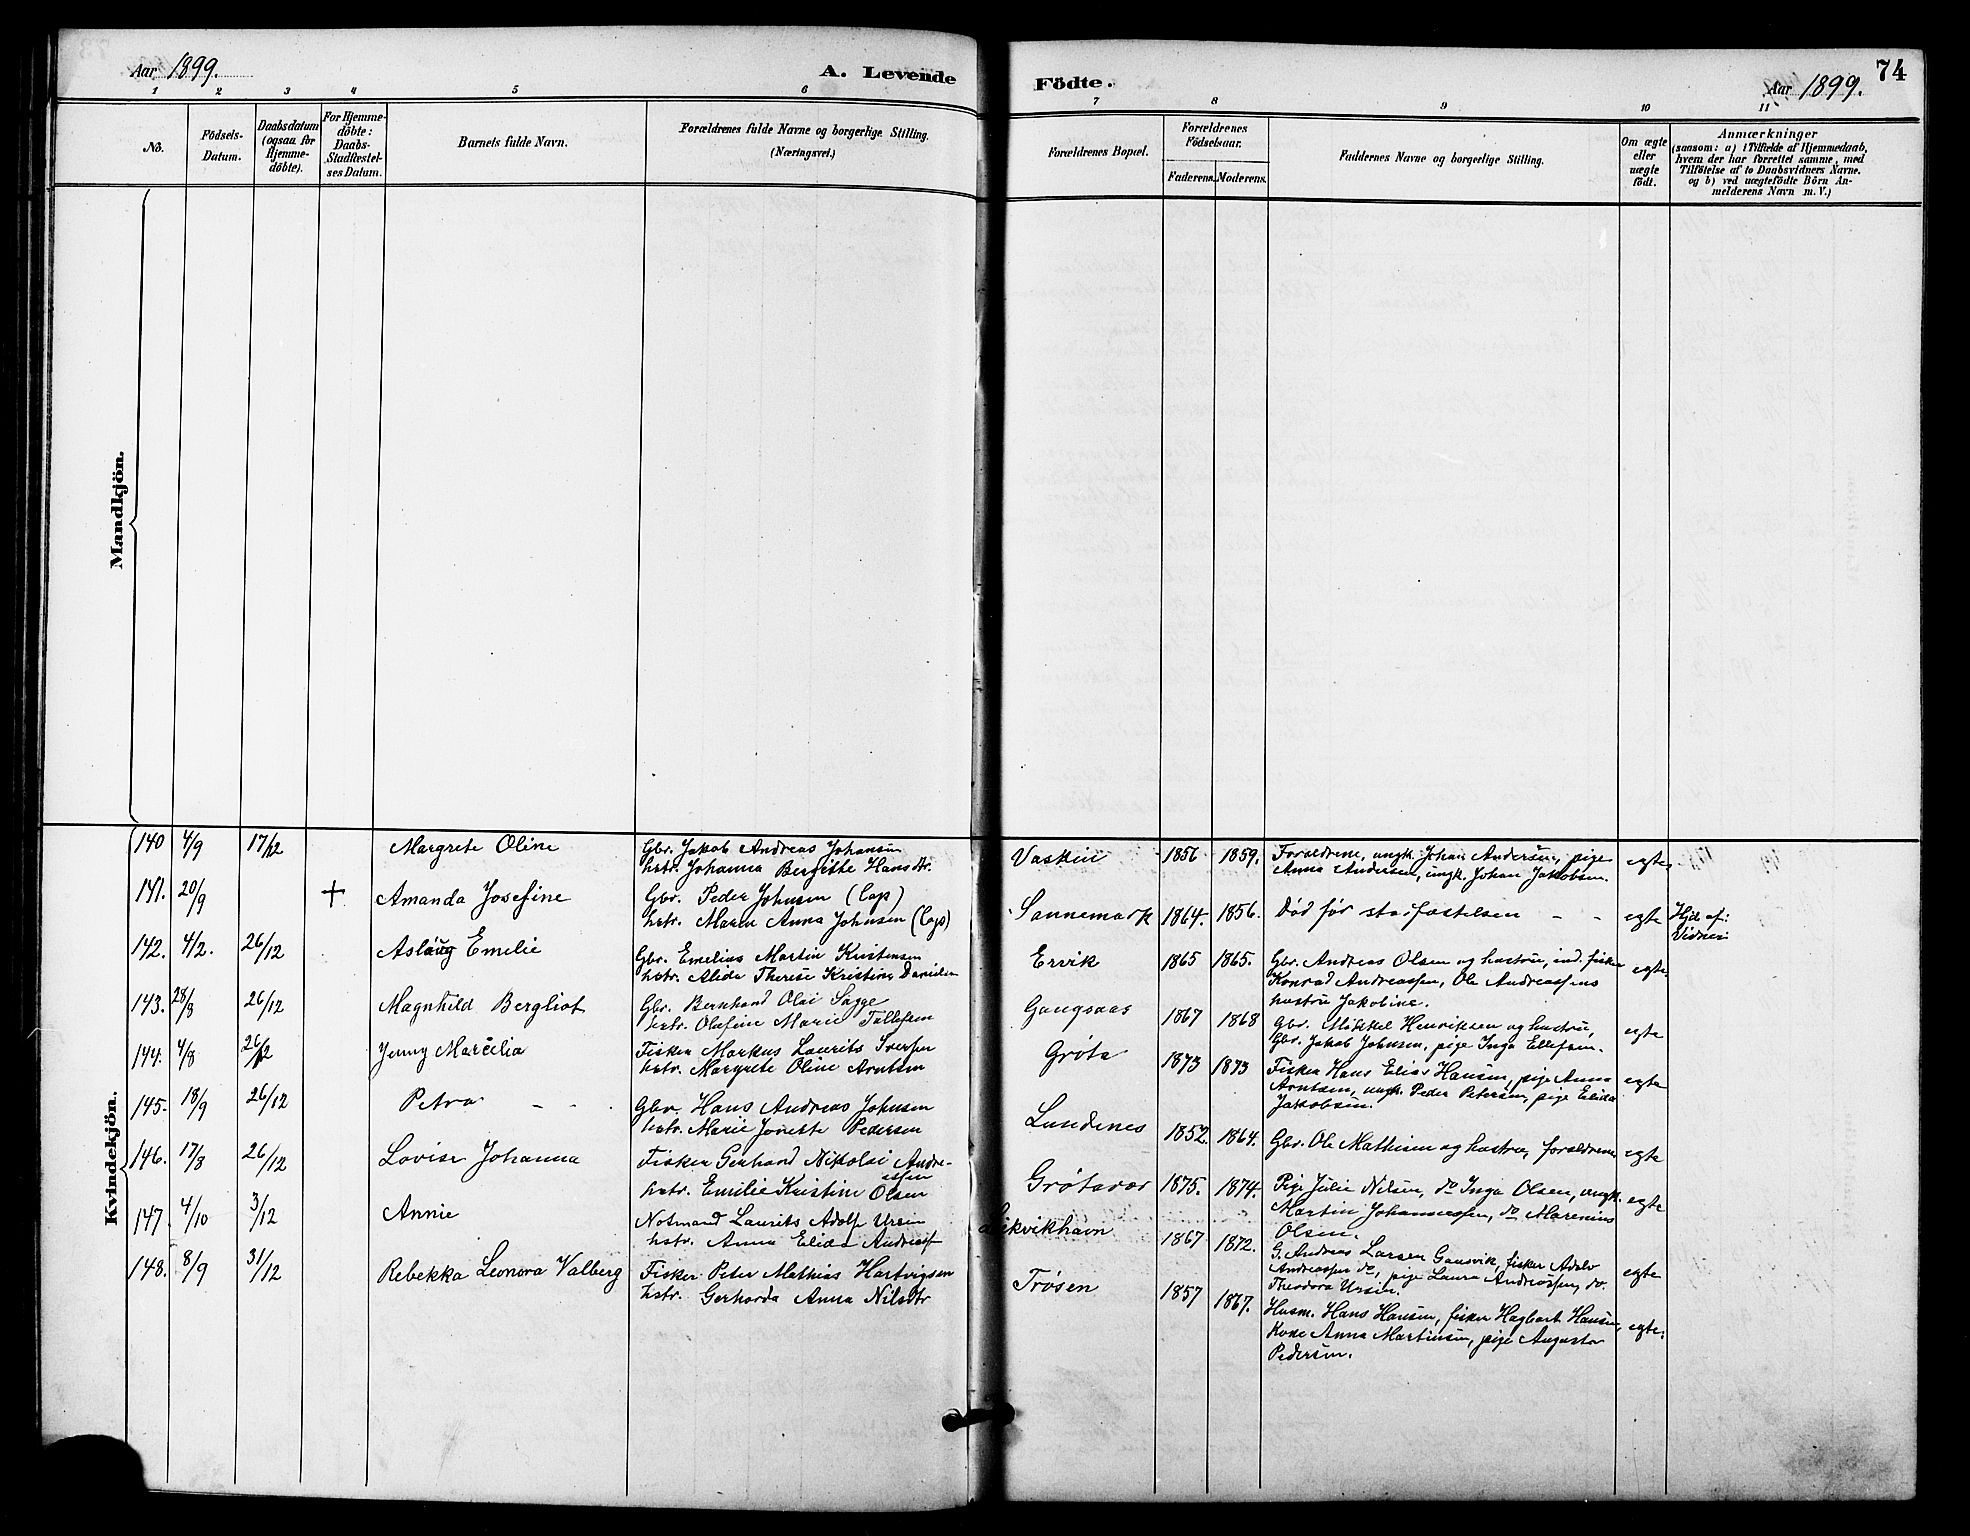 Aar 1899.
A. Levende
Födte.
74
Aar 1899.
1 2 3 4 5 6 7 8 9 10 11
No.
Födsels-
Datum.
Daabsdatum
(ogsaa for
Hjemme-
döbte).
For Hjemme-
döbte:
Daabs-
Stadfæstel-
ses Datum.
Barnets fulde Navn.
Forældrenes fulde Navne og borgerlige Stilling.
(Næringsvei.)
Forældrenes Bopæl.
Forældrenes
Födselsaar.
Faderens.
Moderens.
Faddernes Navne og borgerlige Stilling.
Om ægte
eller
uægte
födt.
Anmærkninger
(saasom: a) i Tilfælde af Hjemmedaab,
hvem der har forrettet samme, med
Tilföielse af to Daabsvidners Navne.
og b) ved uægtefödte Börn An-
melderens Navn m. V.)
Mandkjön.
Kvindekjön.
140 4/9 17/12 Margrete Oline
Gbr. Jakob Andreas Johansen
hstr. Johanna Bergitte Hansdtr.
1856 1859. Foraldrene, ungk. Johan Andersen, pige
Anna Andersen, ungk. Johan Jakobsen.
egte
141. 20/9 + Amanda Josefine
Gbr. Peder Johnsen (Lap)
hstr. Maren Anna Johnsen (Lap)
Sannemark 1864. 1856. Død før stadfæstelsen - -
egte
Hjd. af:
Vidner:
142. 4/2. 26/12 Aslaug Emelie
Gbr. Emelius Martin Kristensen
hstr. Alide Therese Kristine Danielsen
Ervik 1865 1865. Gbr. Andreas Olsen og hustru, ind. fisker
Konrad Andreassen, Ole Andreassens
hustru Jakobine.
egte
143. 28/8 26/12 Magnhild Bergliot
Gbr. Bernhard Olai Sagge
hstr. Olufine Marie Tollefsen
Gangsaas 1867 1868 Gbr. Mikkel Henriksen og hustru,
Gbr. Jakob Johnsen, pige Inga Ellefsen.
egte
144. 4/8 26/12 Jenny Marcelia
Fisker Markus Laurits Iversen
hstr. Margrete Oline Arntsen
Grøtø 1873 1873 Fisker Hans Elias Hansen, pige Anna
Arntsen, ungk. Peder Petersen, pige Elida
Jakobsen.
egte
145. 18/9 26/12 Petra - -
Gbr. Hans Andreas Johnsen
hstr. Marie Jonette Pedersen
Lundenes 1852. 1864. Gbr. Ole Mathisen og hustru, foraldrene
egte
146. 17/8 26/12 Lovise Johanna
Fisker Gerhard Nikolai Andre-
assen
hstr. Emilie Kristine Olsen
Grøtavær 1875. 1874. Pige Julie Nilsen, do Inga Olsen, ungk.
Martin Johannessen, do Marenius
Olsen.
egte
147. 4/10 3/12 Annie
Notmand Laurits Adolf Ursin
hstr. Anna Elida
1867 1872. G. Andreas Larsen Gausvik, fisker Adolv
Andreassen do, pige Laura Andreassen, do.
Theodora Ursin.
egte
148. 8/9 31/12 Rebekka Leonora Valberg
Fisker Peter Mathias Hartvigsen
hstr. Gerharda Anna Nilsdtr
Trøsen 1857 1867. Husm. Hans Hansen, fisker Hagbart Hansen,
Kone Anna Martinsen, pige Augusta
Pedersen.
egte.